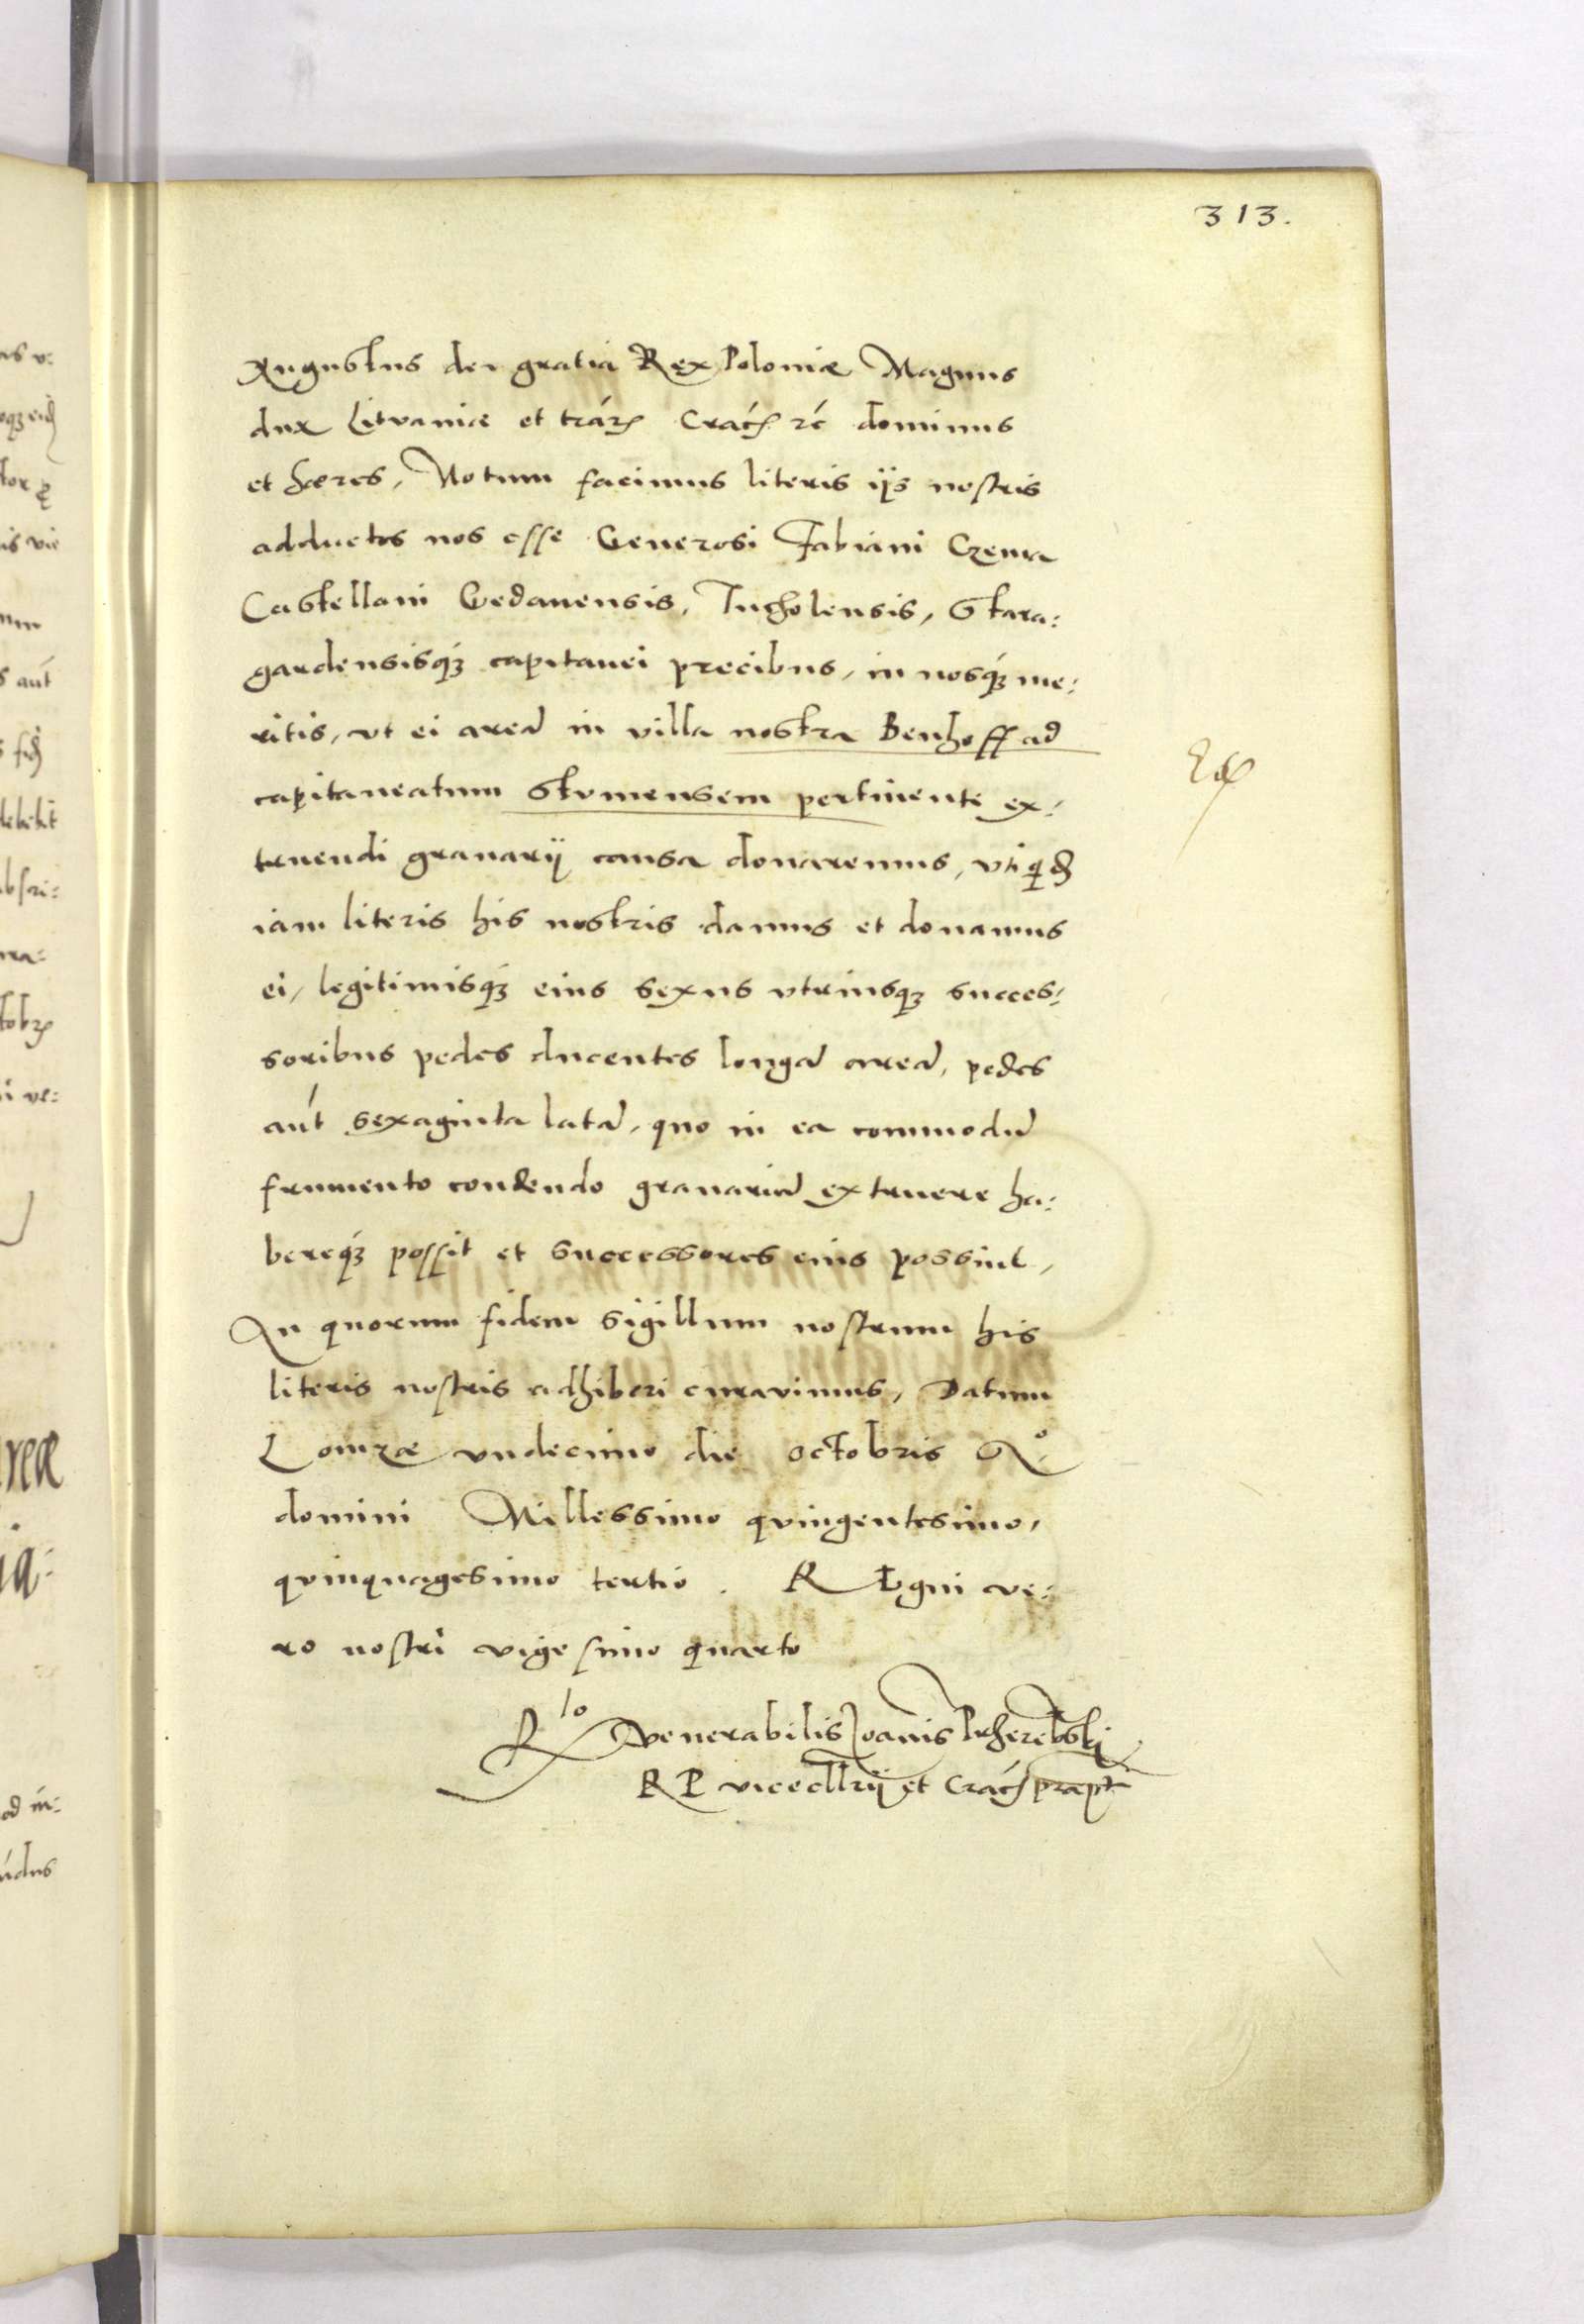 313.
Augustus dei gratia Rex Poloniæ Magnus
dux Litvaniæ et trárꝫ Crać ꝛć dominus
et hæres, Notum facimus literis ijs nostris
adductos nos esse Generosi Fabiani Czema
Castellani Gedanensis, Tucholensis, Stara:
gardensisqꝫ capitanei precibus, in nosqꝫ me:
ritis, vt ei areã in villa nostra Benhoff ad
capitaneatum Stvmensem pertinente ex:
truendi granarij causa donaremus, vti qđ
iam literis his nostris damus et donamus
ei, legitimisqꝫ eius sexus vtriusqꝫ succes:
soribus pedes ducentos longã areã, pedes
aút sexaginta latã, quo in ea commodũ
frumento condendo granariũ extruere ha:
bereqꝫ possit et successores eius possint,
In quorum fidem sigillum nostrum his
literis nostris adhiberi curavimus, Datum
Lomzæ vndecimo die octobris Aº
domini Millessimo qvingentesimo,
qvinquagesimo tertio. REgni ve:
ro nostri vigesimo quarto
Rlo Venerabilis Joannis Prherebski
R P vicecllrij et Crać præpt